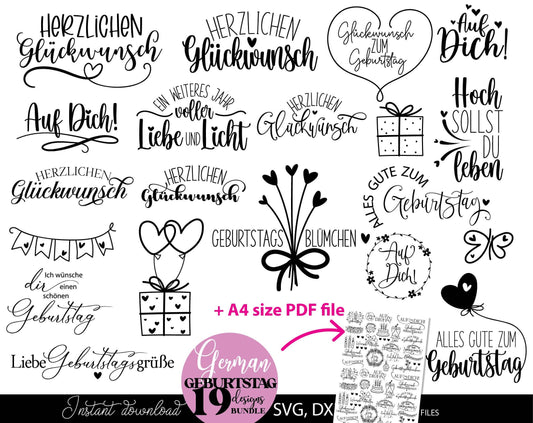 HERZLICHEN
Glückwunsch
HERZLICHEN
Glückwunsch
Glückwunsch
ZUM
Geburtstag
Auf
Dich!
Auf Dich!
EIN WEITERES JAHR
voller
Liebe UND Licht
HERZLICHEN
Glückwunsch
Hoch
SOLLST
DU
leben
HERZLICHEN
Glückwunsch
HERZLICHEN
Glückwunsch
GEBURTSTAGS BLÜMCHEN
ALLES GUTE ZUM
Geburtstag
Auf
Dich!
Ich wünsche
dir einen
schönen
Geburtstag
+ A4 size PDF file
ALLES GUTE ZUM
Geburtstag
Liebe Geburtstagsgrüße
German
GEBURTSTAG
19 designs
BUNDLE
Instant download
SVG, DX
FILES